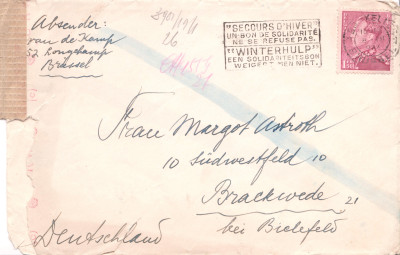 Absender:
van de Kamp
52 Longchamp
Brüssel
26
"SECOURS D'HIVER"
UN BON DE SOLIDARITÉ
NE SE REFUSE PAS.
"WINTERHULP"
EEN SOLIDARITEITSBON
WEIGERT MEN NIET.
Frau Margot Astroth
10 Südwestfeld 10
Brackwede 21
bei Bielefeld
Deutschland